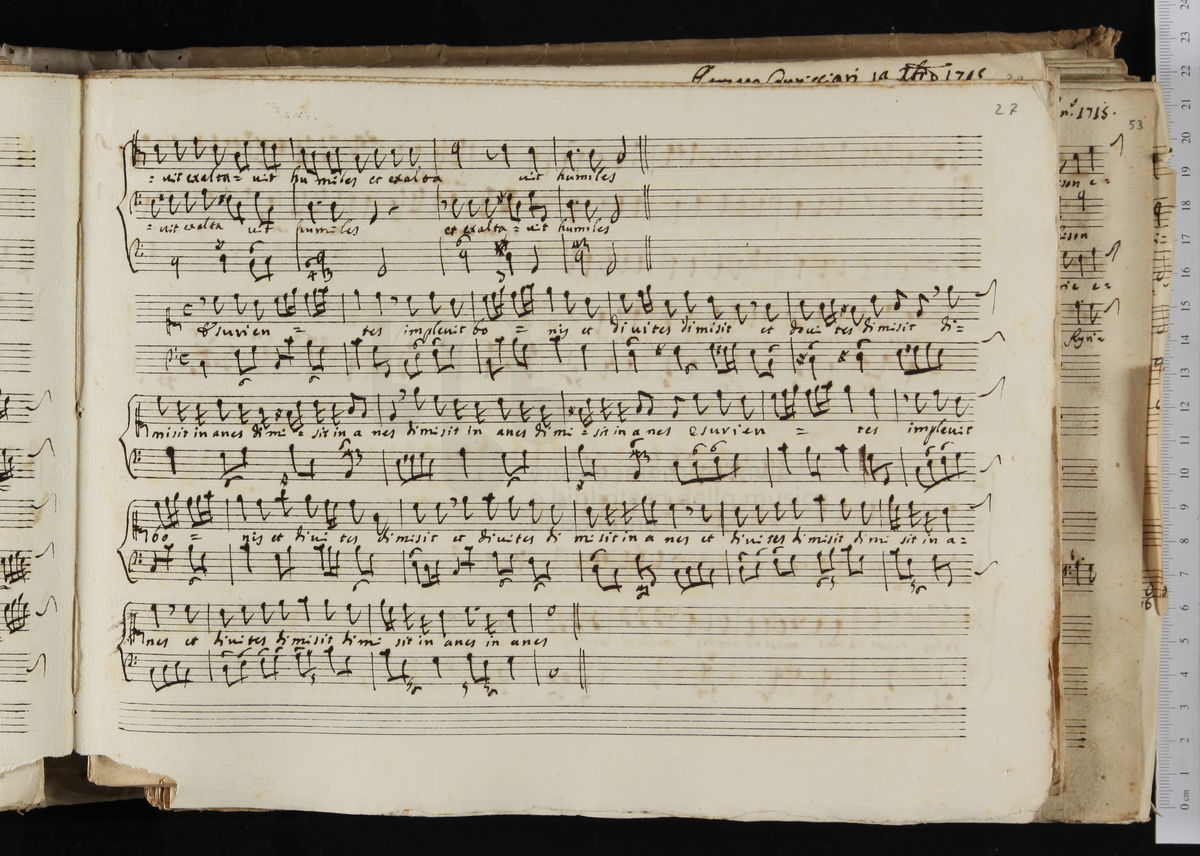 1715
27
nº. 1715.
53
= vit exalta = vit hu miles et exalta vit humiles
= vit exalta vit humiles et exalta = vit humiles
Esurien = tes implevit bo = nis et divites dimisit et divi tes dimisit di=
misit in anes dimi = sit in a nes dimisit in anes dimi = sit in a nes esurien = tes implevit
bo = nis et divi tes dimisit et divites di misit in a nes et divites dimisit dimi sit in a=
nes et divites dimisit dimi sit in anes in anes
son e=
ison
rie e=
Kyrie